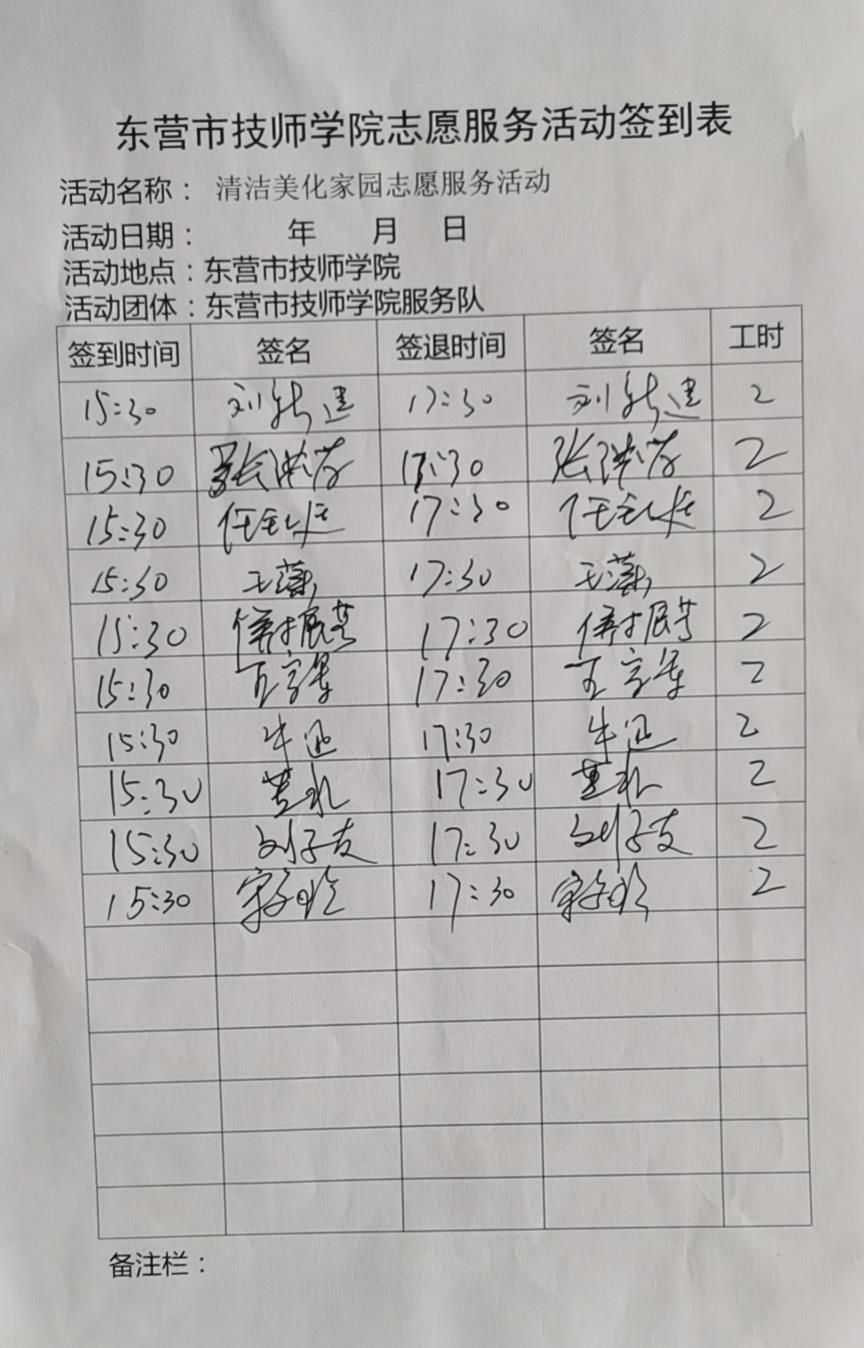 东营市技师学院志愿服务活动签到表
活动名称：清洁美化家园志愿服务活动
活动日期： 年 月 日
活动地点：东营市技师学院
活动团体：东营市技师学院服务队
签到时间 签名 签退时间 签名 工时
15:30 刘 17:30 刘 2
15:30 张 17:30 张 2
15:30 任 17:30 任 2
15:30 王 17:30 王 2
15:30 17:30 2
15:30 王 17:30 王 2
15:30 牛 17:30 牛 2
15:30 17:30 2
15:30 刘子友 17:30 刘子友 2
15:30 宋 17:30 宋 2
备注栏：